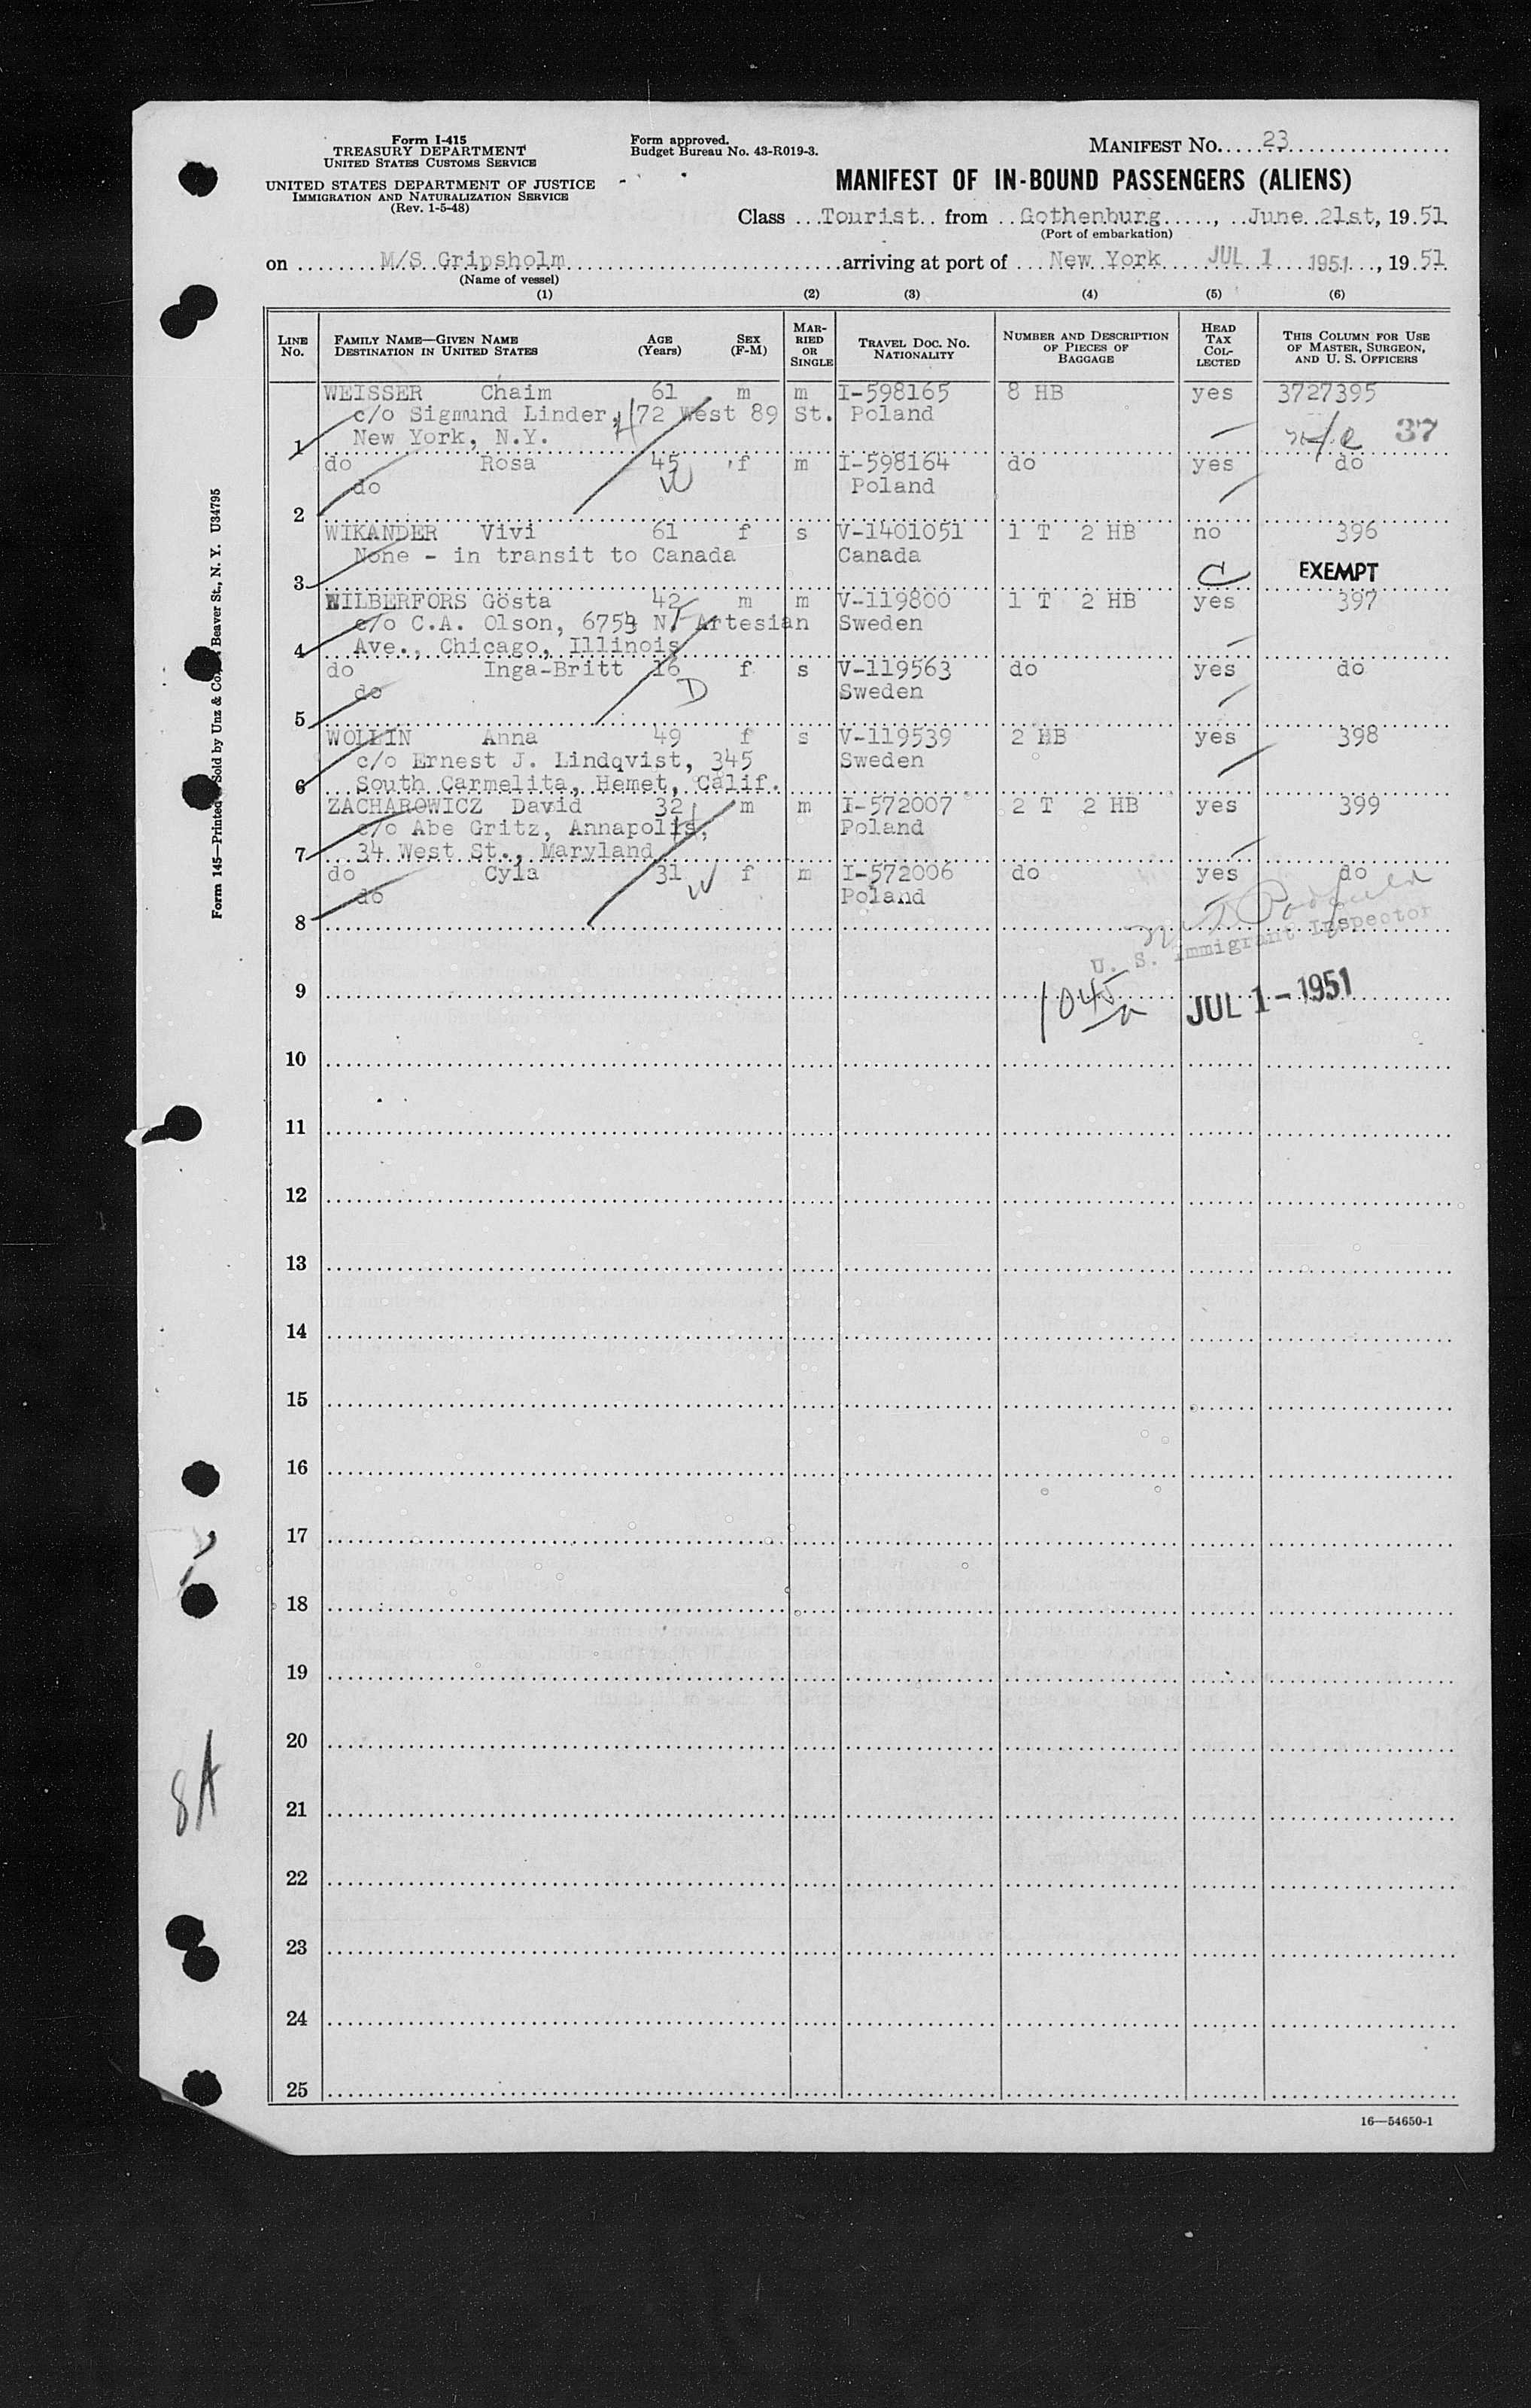 Form I-415
TREASURY DEPARTMENT
UNITED STATES CUSTOMS SERVICE
UNITED STATES DEPARTMENT OF JUSTICE
IMMIGRATION AND NATURALIZATION SERVICE
(Rev. 1-5-48)
Form approved.
Budget Bureau No. 43-R019-3.
MANIFEST No. 23
MANIFEST OF IN-BOUND PASSENGERS (ALIENS)
Class Tourist from Gothenburg, June 21st, 1951
(Port of embarkation)
on M/S Gripsholm arriving at port of New York JUL 1 1951, 1951
(Name of vessel)
(1) (2) (3) (4) (5) (6)
LINE No. FAMILY NAME—GIVEN NAME DESTINATION IN UNITED STATES AGE (Years) SEX (F-M) MARRIED OR SINGLE TRAVEL DOC. NO. NATIONALITY NUMBER AND DESCRIPTION OF PIECES OF BAGGAGE HEAD TAX COLLECTED THIS COLUMN FOR USE OF MASTER, SURGEON, AND U. S. OFFICERS
WEISSER Chaim 61 m m I-598165 8 HB yes 3727395
c/o Sigmund Linder, 172 West 89 St. Poland
37
1 New York, N.Y.
do Rosa 45 f m I-598164 do yes do
do Poland
W
2
WIKANDER Vivi 61 f s V-1401051 1 T 2 HB no 396
None - in transit to Canada Canada
3 C EXEMPT
WILBERFORS Gösta 42 m m V-119800 1 T 2 HB yes 397
c/o C.A. Olson, 6754 N. Artesian Sweden
4 Ave., Chicago, Illinois
do Inga-Britt 16 f s V-119563 do yes do
do D Sweden
5
WOLLIN Anna 49 f s V-119539 2 HB yes 398
c/o Ernest J. Lindqvist, 345 Sweden
6 South Carmelita, Hemet, Calif.
ZACHAROWICZ David 32 m m I-572007 2 T 2 HB yes 399
c/o Abe Gritz, Annapolis, Poland
7 34 West St., Maryland
do Cyla 31 f m I-572006 do yes do
do W Poland
8
U. S. Immigrant Inspector
9 1045 a JUL 1 - 1951
10
11
12
13
14
15
16
17
18
19
20
21
22
23
24
25
16—54650-1
Form 145—Printed Sold by Unz & Co. Beaver St., N. Y. U34795
8A